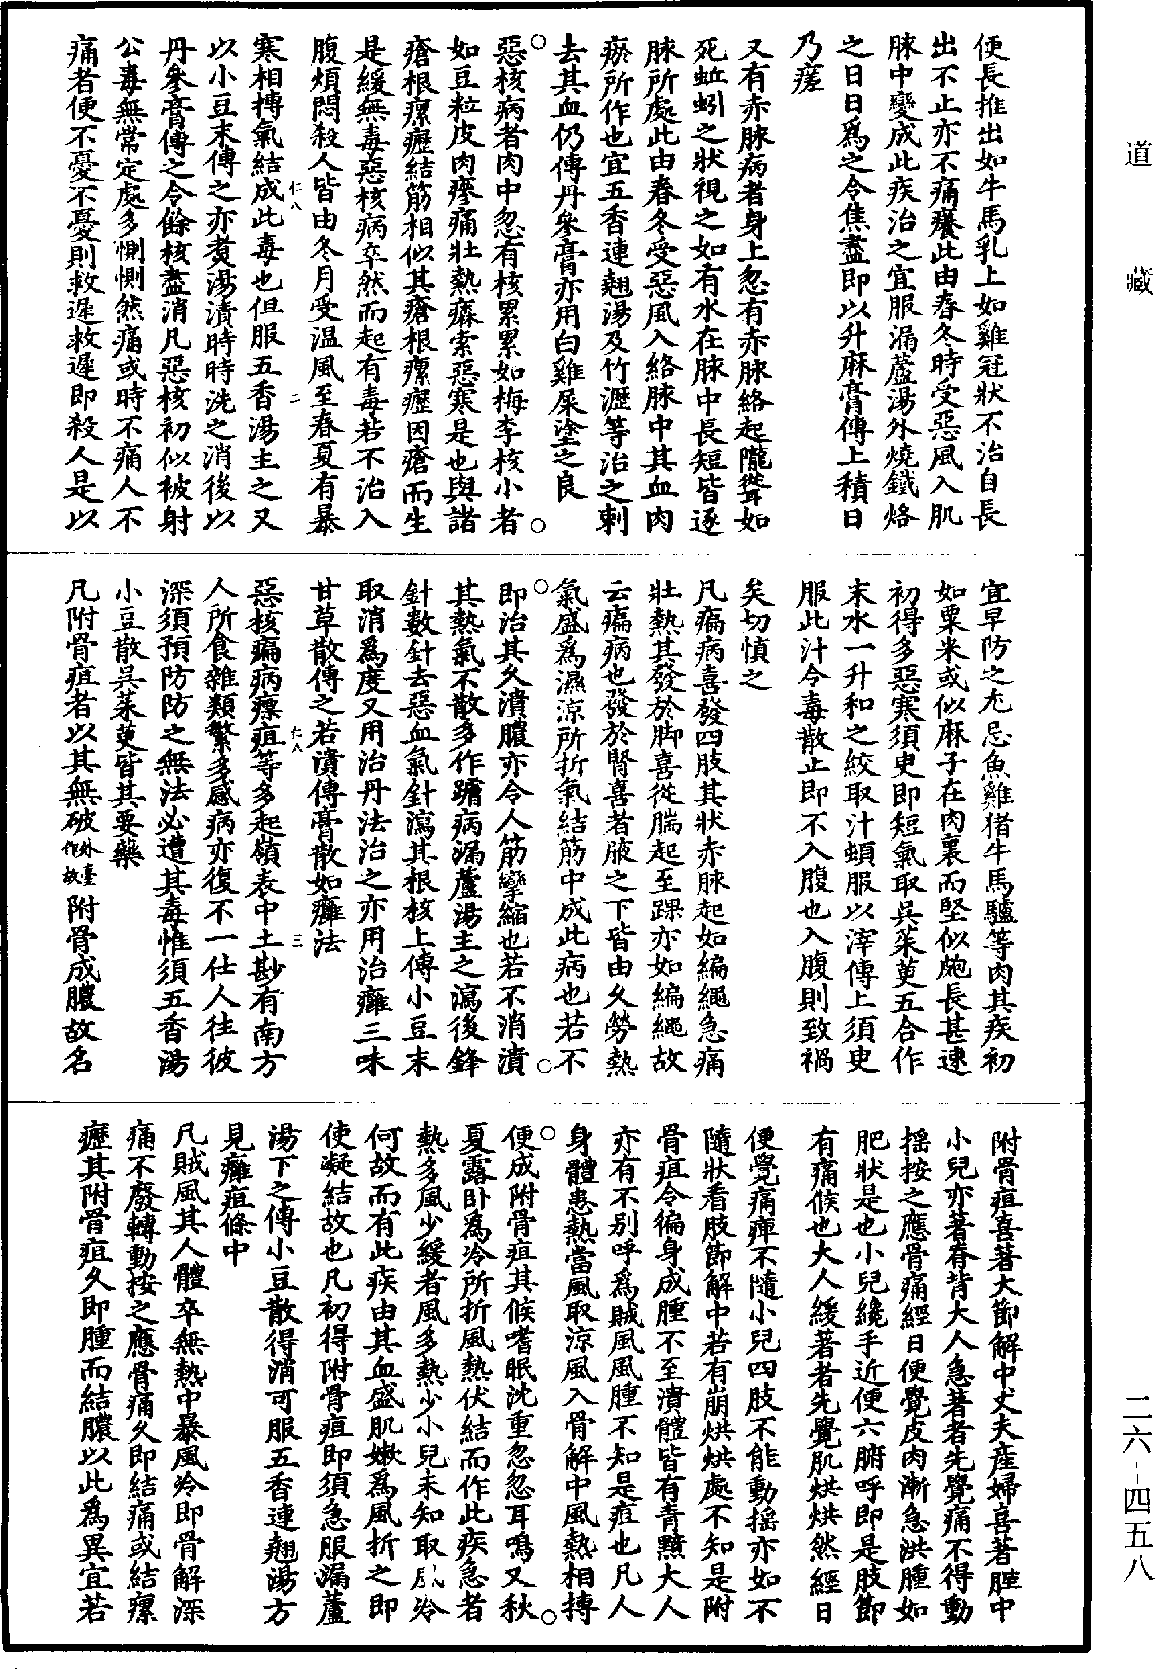 道藏
二六-四五八
便長推出如牛馬乳上如雞冠狀不治自長
出不止亦不痛癢此由春冬時受惡風入肌
脉中變成此疾治之宜服漏蘆湯外燒鐵烙
之日日爲之令焦盡即以升麻膏傅上積日
乃瘥
又有赤脉病者身上忽有赤脉絡起隴聳如
死蚯蚓之狀視之如有水在脉中長短皆逐
脉所處此由春冬受惡風入絡脉中其血肉
瘀所作也宜五香連翹湯及竹瀝等治之刺
去其血仍傅丹參膏亦用白雞屎塗之良
惡核病者肉中忽有核累累如梅李核小者
如豆粒皮肉瘮痛壯熱瘷索惡寒是也與諸
瘡根瘰癧結筋相似其瘡根瘰癧因瘡而生
是緩無毒惡核病卒然而起有毒若不治入
腹煩悶殺人皆由冬月受温風至春夏有暴
寒相搏氣結成此毒也但服五香湯主之又
仁八 二
以小豆末傅之亦煑湯漬時時洗之消後以
丹參膏傅之令餘核盡消凡惡核初似被射
公毒無常定處多惻惻然痛或時不痛人不
痛者便不憂不憂則救遲救遲即殺人是以
宜早防之尤忌魚雞猪牛馬驢等肉其疾初
如粟米或似麻子在肉裏而堅似皰長甚速
初得多惡寒須臾即短氣取吳茱萸五合作
末水一升和之絞取汁頓服以滓傅上須臾
服此汁令毒散止即不入腹也入腹則致禍
矣切慎之
凡瘺病喜發四肢其狀赤脉起如編繩急痛
壯熱其發於脚喜從腨起至踝亦如編繩故
云瘺病也發於腎喜著腋之下皆由久勞熱
氣盛爲濕涼所折氣結筋中成此病也若不
即治其久潰膿亦令人筋攣縮也若不消潰
其熱氣不散多作䐔病漏蘆湯主之瀉後鋒
針數針去惡血氣針瀉其根核上傅小豆末
取消爲度又用治丹法治之亦用治癰三味
甘草散傅之若潰傅膏散如癰法
惡核瘺病瘭疽等多起嶺表中土尠有南方
仁八 三
人所食雜類繁多感病亦復不一仕人往彼
深須預防防之無法必遭其毒惟須五香湯
小豆散吳茱萸皆其要藥
凡附骨疽者以其無破外臺作故附骨成膿故名
附骨疽喜著大節解中丈夫產婦喜著䏶中
小兒亦著脊背大人急著者先覺痛不得動
揺按之應骨痛經日便覺皮肉漸急洪腫如
肥狀是也小兒纔手近便六腑呼即是肢節
有痛候也大人緩著者先覺肌烘烘然經日
便覺痛痺不隨小兒四肢不能動揺亦如不
隨狀看肢節解中若有崩烘烘處不知是附
骨疽令徧身成腫不至潰體皆有青黶大人
亦有不別呼爲賊風風腫不知是疽也凡人
身體患熱當風取涼風入骨解中風熱相搏
便成附骨疽其候嗜眠沈重忽忽耳鳴又秋
夏露卧爲冷所折風熱伏結而作此疾急者
熱多風少緩者風多熱少小兒未知取風冷
何故而有此疾由其血盛肌嫩爲風折之即
使凝結故也凡初得附骨疽即須急服漏蘆
湯下之傅小豆散得消可服五香連翹湯方
見癰疽條中
凡賊風其人體卒無熱中暴風冷即骨解深
痛不廢轉動按之應骨痛久即結痛或結瘰
癧其附骨疽久即腫而結膿以此爲異宜若